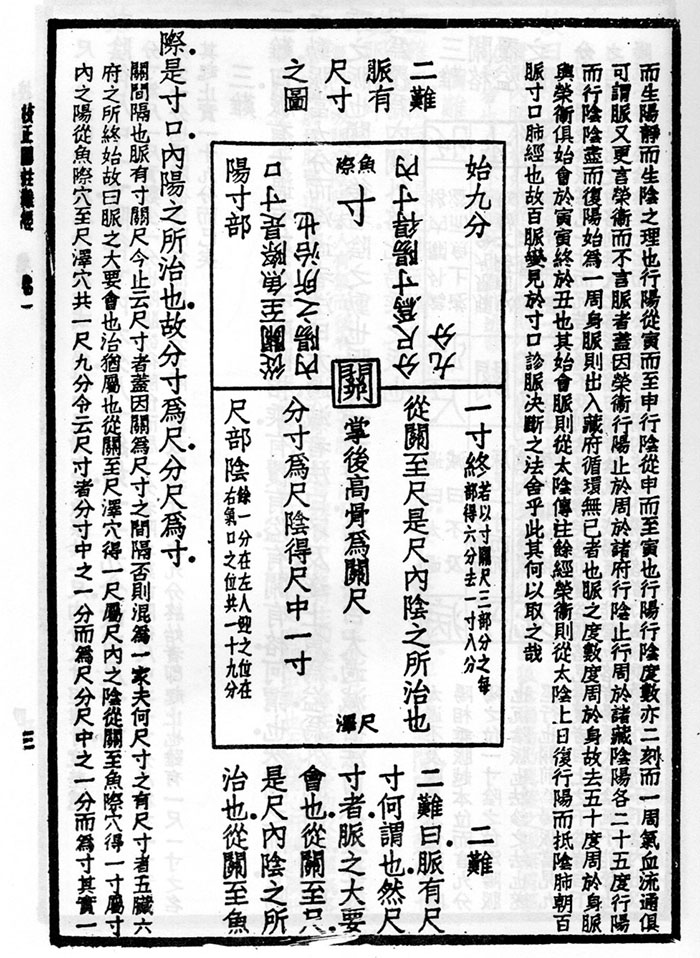 而生陽靜而生陰之理也行陽從寅而至申行陰從申而至寅也行陽行陰度數亦二刻而一周氣血流通俱
可謂脈又更言榮衞而不言脈者蓋因榮衞行陽止於周於諸府行陰止行周於諸藏陰陽各二十五度行陽
而行陰陰盡而復陽始爲一周身脈則出入藏府循環無已者也脈之度數度周於身故去五十度周於身脈
與榮衞俱始會於寅寅終於丑也其始會脈則從太陰傳注餘經榮衞則從太陰上日復行陽而抵陰肺朝百
脈寸口肺經也故百脈變見於寸口診脈決斷之法舍乎此其何以取之哉
二難
脈有
尺寸
之圖
始九分
魚際
寸
陽寸部
從關至魚際是寸口
內陽之所治也
分尺爲寸陽得寸內
九分
關
一寸終
若以寸關尺三部分之每
部得六分去一寸八分
從關至尺是尺內陰之所治也
掌後高骨爲關尺
尺澤
分寸爲尺陰得尺中一寸
尺部陰
餘一分在左人迎之位在
右氣口之位共一十九分
二難
二難曰脈有尺
寸何謂也然尺
寸者脈之大要
會也從關至尺
是尺內陰之所
治也從關至魚
際是寸口內陽之所治也故分寸爲尺分尺爲寸
關間隔也脈有寸關尺今止云尺寸者蓋因關爲尺寸之間隔否則混爲一家夫何尺寸之有尺寸者五臟六
府之所終始故曰脈之大要會也治猶屬也從關至尺澤穴得一尺屬尺內之陰從關至魚際穴得一寸屬寸
內之陽從魚際穴至尺澤穴共一尺九分今云尺寸者分寸中之一分而爲尺分尺中之一分而爲寸其實一
卷一
三